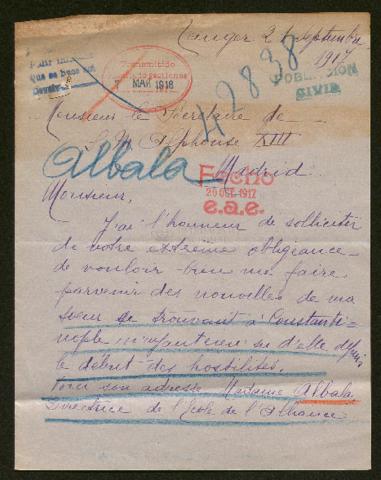 Tanger 2 Septembre
1917
Transmitido
7 MAR 1918
42838
POBLACION
CIVIL
Monsieur le Secrétaire de
S. M. Alphonse XIII
Madrid
Albala
Fecho
20 OCT. 1917
e.a.e.
Monsieur,
J'ai l'honneur de solliciter
de votre extrême obligeance
de vouloir bien me faire
parvenir des nouvelles de ma
soeur se trouvant à Constanti-
nople n'ayant rien su d'elle depuis
le début des hostilités.
Voici son adresse Madame Albala
Directrice de l'Ecole de l'Alliance